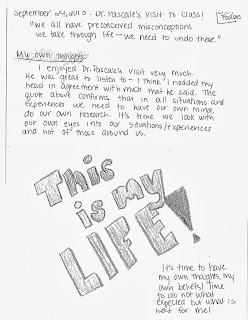 September 24, 2010. Dr. Pascale's Visit to Class!
"we all have preconceived misconceptions
we take through life—we need to undo these."
My own thoughts
I enjoyed Dr. Pascale's visit very much.
He was great to listen to - I think I nodded my
head in agreement with much that he said. The
quote above confirms that in all situations and
experiences we need to have our own mind,
do our own research. It's time we look with
our own eyes into our situations/experiences
and not of those around us.
This
is my
LIFE!
It's time to have
my own thoughts, my
own beliefs! Time
to do not what
expected but what is
best for me!